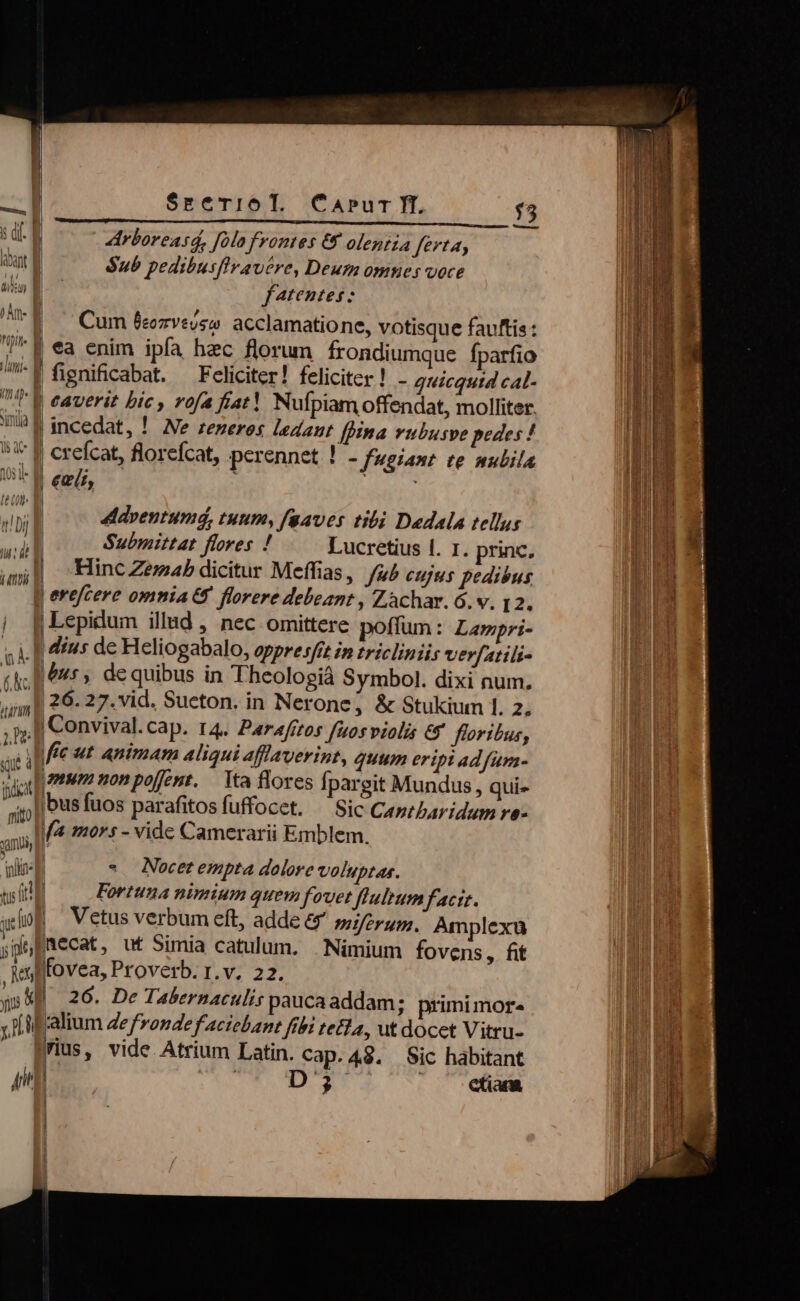 SECTIO I. CAPUT II. 53
Arboreasq́, solo frontes & olentia serta,
Sub pedibus stravêre, Deum omnes voce
fatentes:
Cum θεοπνεύσῳ acclamatione, votisque faustis:
ea enim ipsa hæc florum frondiumque sparsio
significabat. Feliciter! feliciter! - quicquid cal-
caverit hic, rosa fiat! Nuspiam offendat, molliter
incedat, ! Ne teneros lædant spina rubusve pedes!
crescat, florescat, perennet ! - fugiant te nubila
cœli,
Adventumq́, tuum, suaves tibi Dædala tellus
Submittat flores ! Lucretius l. 1. princ.
Hinc Zemah dicitur Messias, sub cujus pedibus
erescere omnia & florere debeant, Zachar. 6. v. 12.
Lepidum illud, nec omittere possum: Lampri-
dius de Heliogabalo, oppressit in tricliniis versatili-
bus, de quibus in Theologiâ Symbol. dixi num.
26. 27. vid. Sueton. in Nerone, & Stukium l. 2.
Convival. cap. 14. Parasitos suos violis & floribus,
sic ut animam aliqui afflaverint, quum eripi ad sum-
mum non possent. Ita flores spargit Mundus, qui-
bus suos parasitos suffocet. Sic Cantharidum ro-
sa mors - vide Camerarii Emblem.
- Nocet empta dolore voluptas.
Fortuna nimium quem fovet stultum facit.
Vetus verbum est, adde & miserum. Amplexu
necat, ut Simia catulum. Nimium fovens, fit
fovea, Proverb. 1. v. 22.
26. De Tabernaculis pauca addam; primi mor-
talium de fronde faciebant sibi tecta, ut docet Vitru-
vius, vide Atrium Latin. cap. 48. Sic habitant
D 3 etiam